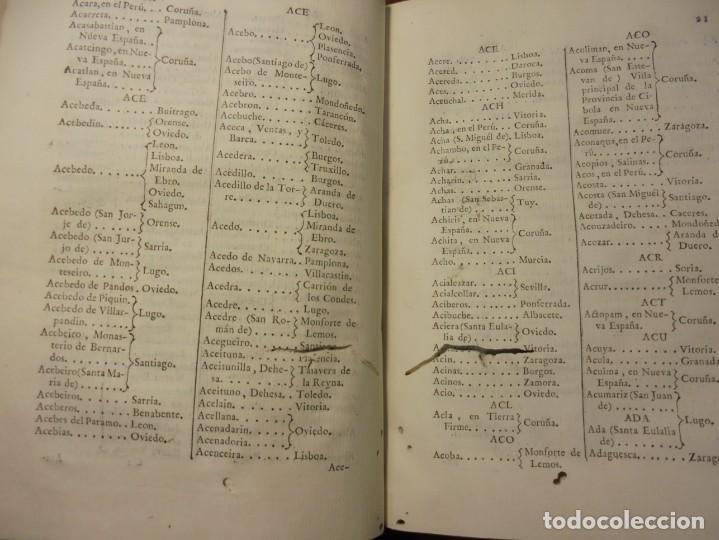 Acara, en el Perú. Coruña.
Acarreta. . . . . . Pamplona.
Acasabastlan, en
Nueva España. . .
Acatcingo, en Nue-
va España. . . . .
Coruña.
Acatlan, en Nueva
España. . . . . . .
ACE
Acebeda. . . . . . . Buitrago.
Acebedin. . . . . . Orense.
Oviedo.
Leon.
Lisboa.
Acebedo. . . . . . . Miranda de
Ebro.
Oviedo.
Sahagun.
Acebedo (San Jor-
je de) . . . . . . Orense.
Acebedo (San Jur-
jo de) . . . . . . Sarria.
Acebedo de Mon-
teseiro. . . . . . Lugo.
Acebedo de Pandos. Oviedo.
Acebedo de Piquin.
Acebedo de Villar-
pandin. . . . . .
Lugo.
Acebeiro, Monas-
terio de Bernar-
dos. . . . . . . .
Santiago.
Acebeiro (Santa Ma-
ria de) . . . . . .
Acebeiros. . . . . . Sarria.
Aceberos. . . . . . Benabente.
Acebes del Paramo. Leon.
Acebias. . . . . . . Oviedo.
ACE
Leon.
Acebo. . . . . . . . Oviedo.
Plasencia.
Ponferrada.
Acebo (Santiago de)
Acebo de Monte-
seiro. . . . . . .
Lugo.
Acebro. . . . . . . Mondoñedo.
Acebron. . . . . . . Tarancón.
Acebuche. . . . . . Cáceres.
Aceca, Ventas, y
Barca. . . . . . . Toledo.
Acedera. . . . . . . Burgos.
Truxillo.
Acedillo. . . . . . . Burgos.
Acedillo de la Tor-
re. . . . . . . . . Aranda de
Duero.
Lisboa.
Acedo. . . . . . . . Miranda de
Ebro.
Zaragoza.
Acedo de Navarra. . Pamplona.
Acedos. . . . . . . Villacastin.
Acedra. . . . . . . Carrión de
los Condes.
Acedre. . . . . . . Lugo.
Acedre (San Ro-
mán de) . . . . . Monforte de
Lemos.
Acegueiro. . . . . . Santiago.
Aceituna. . . . . . Plasencia.
Aceitunilla, Dehe-
sa. . . . . . . . . Talavera de
la Reyna.
Aceituno, Dehesa. . Toledo.
Acelain. . . . . . . Vitoria.
Acellana. . . . . .
Acenadarin. . . . . Oviedo.
Acenadoria. . . . .
Acenceira. . . . . . Lisboa.
Ace-
21
ACE
Acere. . . . . . . . Lisboa.
Acered. . . . . . . Daroca.
Acereda. . . . . . . Burgos.
Aces. . . . . . . . . Oviedo.
Aceuchal. . . . . . Merida.
ACH
Acha. . . . . . . . Vitoria.
Acha, en el Perú. . Coruña.
Acha (S. Miguel de). Lisboa.
Achambo, en el Pe-
rú. . . . . . . . . Coruña.
Achar. . . . . . . . Granada.
Acharin. . . . . . . Sarria.
Achas. . . . . . . . Orense.
Achas (San Sebas-
tian de) . . . . . Tuy.
Achicis, en Nueva
España. . . . . .
Achita, en Nueva
España. . . . . .
Coruña.
Acho. . . . . . . . Murcia.
ACI
Acialcazar. . . . . .
Acialcollar. . . . . Sevilla.
Aciberos. . . . . . Ponferrada.
Acibuche. . . . . . Albacete.
Aciera (Santa Eula-
lia de) . . . . . . Oviedo.
Vitoria.
Acin. . . . . . . . Zaragoza.
Acinas. . . . . . . . Burgos.
Acinos. . . . . . . Zamora.
Acio. . . . . . . . . Oviedo.
ACL
Acla, en Tierra
Firme. . . . . . . Coruña.
ACO
Acoba. . . . . . . . Monforte de
Lemos.
ACO
Acoliman, en Nue-
va España. . . . .
Acoma (San Este-
van de) Villa
principal de la
Provincia de Ci-
bola en Nueva
España. . . . . . .
Coruña.
Acomuer. . . . . . . Zaragoza.
Aconaqua, en el Pe-
rú. . . . . . . . .
Acopios, Salinas. .
Acos, en el Perú. .
Coruña.
Acosta. . . . . . . . Vitoria.
Acosta (San Miguel
de) . . . . . . . . Santiago.
Acotada, Dehesa. . Caceres.
Acouzadeiro. . . . . Mondoñe
Acozar. . . . . . . Aranda de
Duero.
ACR
Acrijos. . . . . . . Soria.
Monforte de
Lemos.
ACT
Actopam, en Nue-
va España. . . . . Coruña.
ACU
Acuya. . . . . . . . Vitoria.
Acula. . . . . . . . Granada
Aculma, en Nueva
España. . . . . . Coruña.
Acumariz (San Juan
de) . . . . . . . .
ADA
Lugo.
Ada (Santa Eulalia
de) . . . . . . . .
Adaguesca. . . . . . Zarag
todocoleccion.net